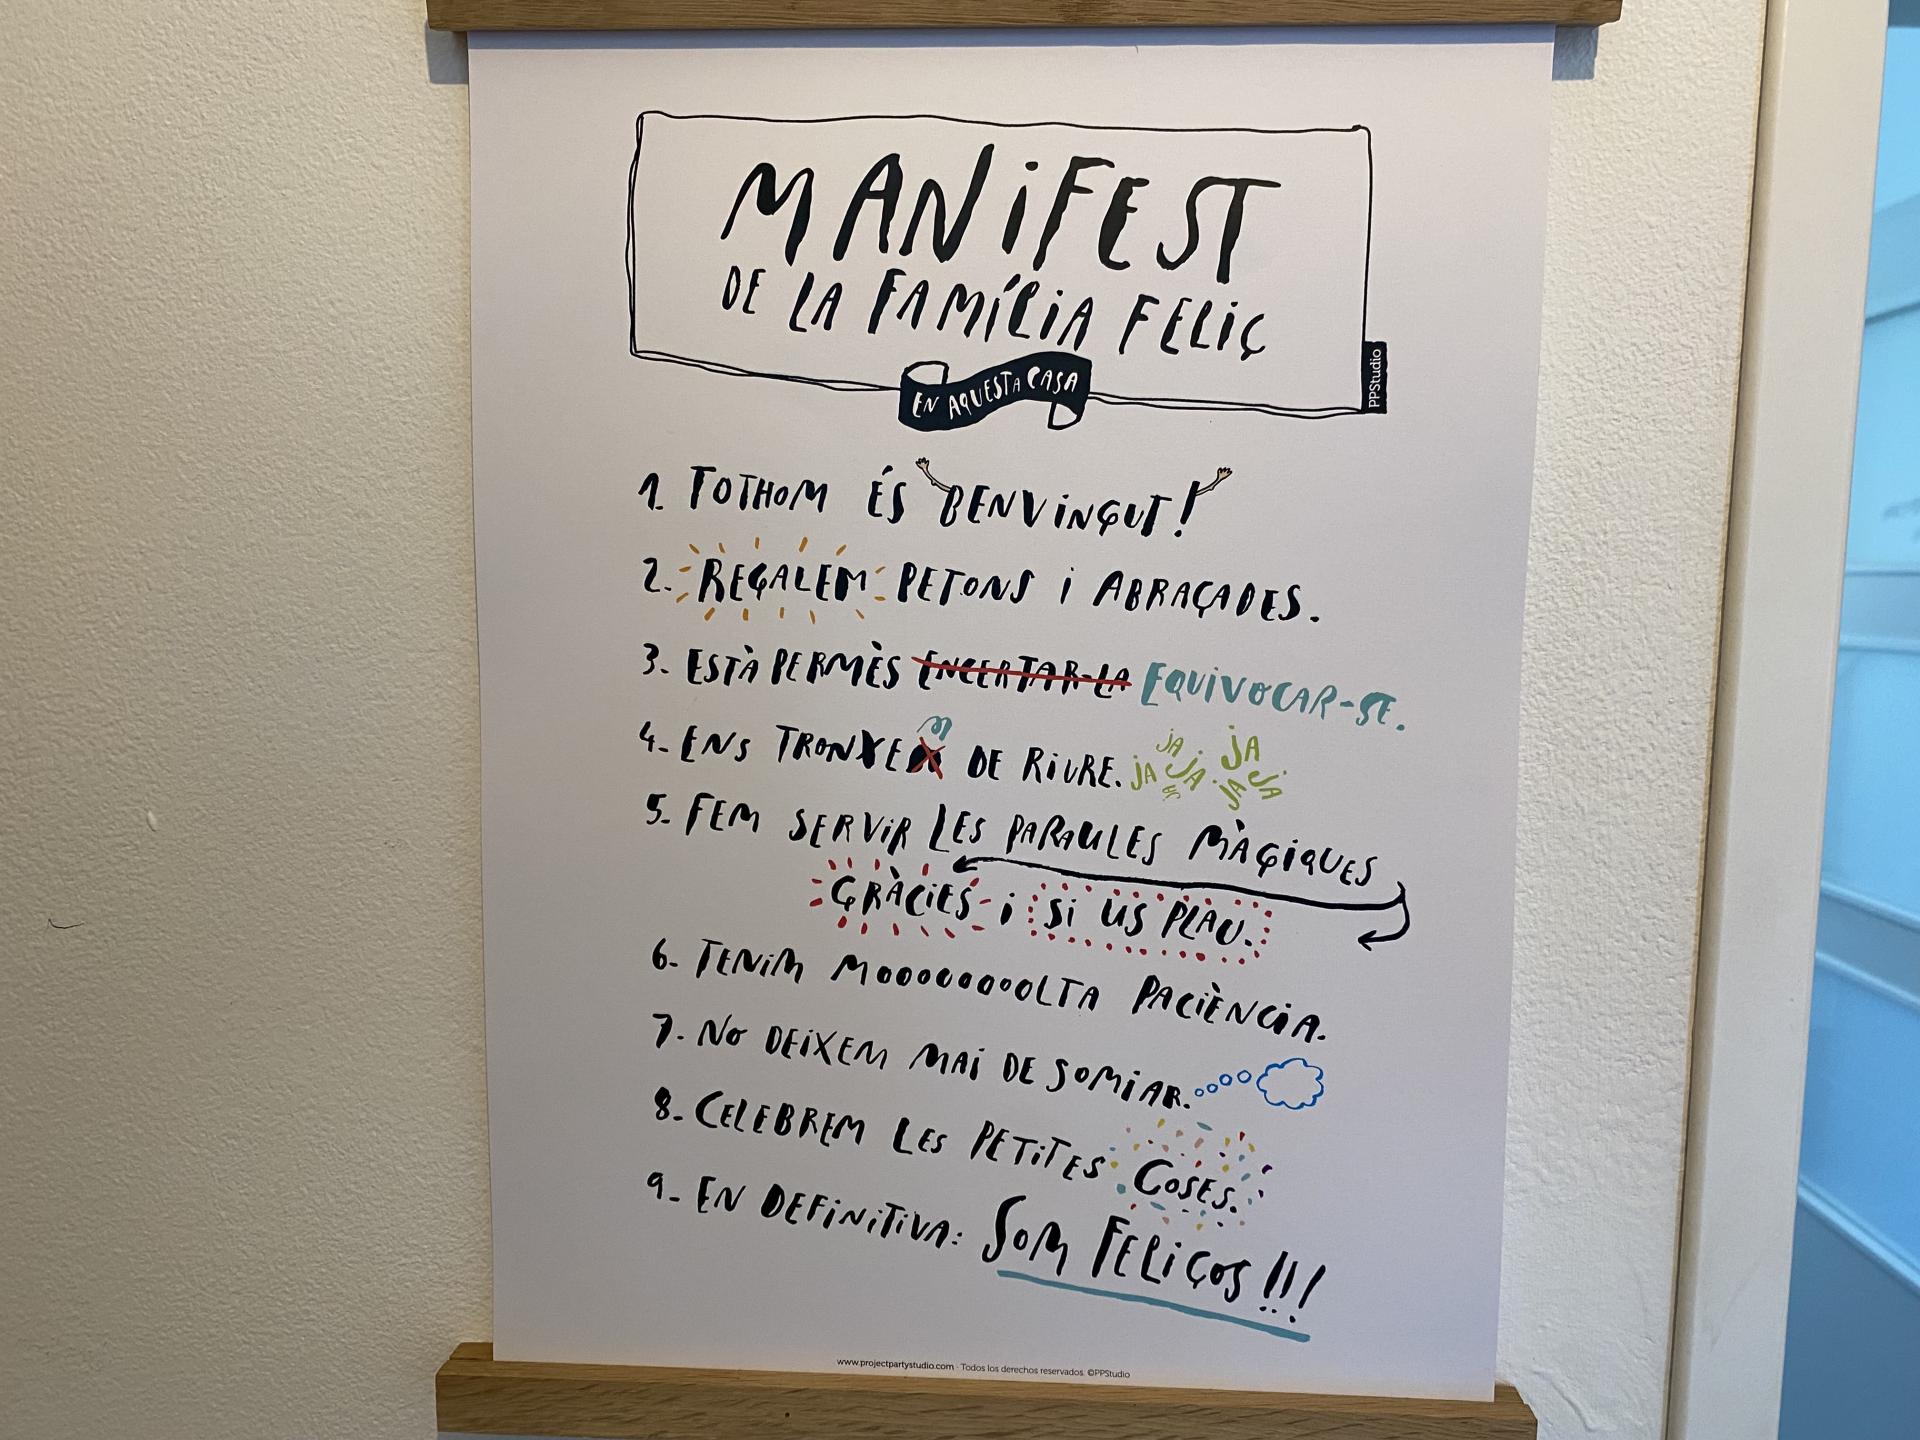 MANIFEST
DE LA FAMÍLIA FELIÇ
EN AQUESTA CASA
PPStudio
1. TOTHOM ÉS BENVINGUT!
2. REGALEM PETONS I ABRAÇADES.
3. ESTÀ PERMÈS ENCERTAR-LA EQUIVOCAR-SE.
4. ENS TRONXEM DE RIURE. JA JA JA JA JA JA JA JA
5. FEM SERVIR LES PARAULES MÀGIQUES
GRÀCIES I SI US PLAU.
6. TENIM MOOOOOOOOLTA PACIÈNCIA.
7. NO DEIXEM MAI DE SOMIAR.
8. CELEBREM LES PETITES COSES.
9. EN DEFINITIVA: SOM FELIÇOS!!!
www.projectpartystudio.com · Todos los derechos reservados. ©PPStudio